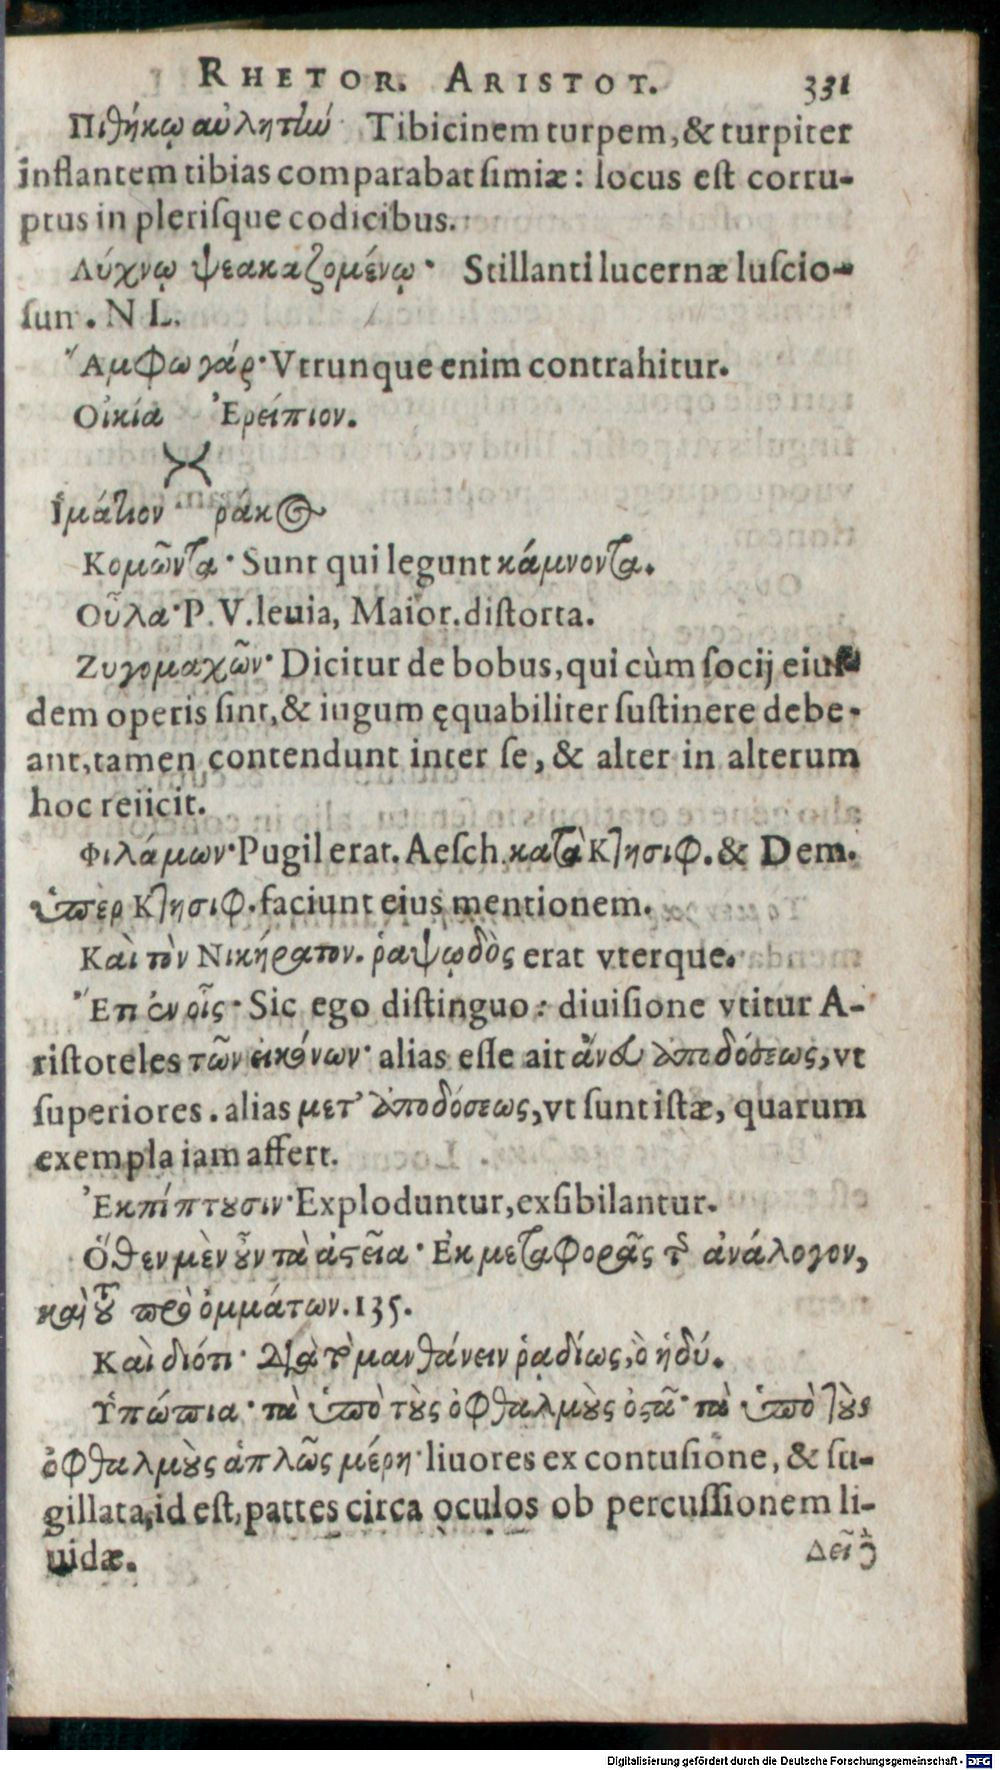 RHETOR. ARISTOT. 331
Πιθήκῳ αὐλητῇ· Tibicinem turpem, & turpiter
inflantem tibias comparabat simiæ: locus est corru-
ptus in plerisque codicibus.
Λύχνῳ ψεακαζομένῳ· Stillanti lucernæ luscio-
sum. N L.
Ἄμφω γάρ· Vtrunque enim contrahitur.
Οἰκία Ἐρείπιον.
Ἱμάτιον ῥάκος
Κομῶντα· Sunt qui legunt κάμνοντα.
Οὖλα· P. V. leuia, Maior. distorta.
Ζυγομαχῶν· Dicitur de bobus, qui cùm socij eius
dem operis sint, & iugum ęquabiliter sustinere debe-
ant, tamen contendunt inter se, & alter in alterum
hoc reiicit.
Φιλάμων· Pugil erat. Aesch. κατὰ Κτησιφ. & Dem.
ὑπὲρ Κτησιφ. faciunt eius mentionem.
Καὶ τὸν Νικήρατον. ῥαψῳδὸς erat vterque.
Ἔπ ἐν οἷς· Sic ego distinguo: diuisione vtitur A-
ristoteles τῶν εἰκόνων· alias esse ait ἄνευ ἀποδόσεως, vt
superiores. alias μετ' ἀποδόσεως, vt sunt istæ, quarum
exempla iam affert.
Ἐκπίπτουσιν· Exploduntur, exsibilantur.
Ὅθεν μὲν οὖν τὰ ἀστεῖα· Ἐκ μεταφορᾶς τῆς ἀνάλογον,
καὶ τοῦ πρὸ ὀμμάτων. 135.
Καὶ διότι· Διὰ τὸ μανθάνειν ῥᾳδίως, ὃ ἡδύ.
Ὑπώπια· τὰ ὑπὸ τοὺς ὀφθαλμοὺς ὀστᾶ· τὰ ὑπὸ τοὺς
ὀφθαλμοὺς ἁπλῶς μέρη· liuores ex contusione, & su-
gillata, id est, partes circa oculos ob percussionem li-
uidæ. Δεῖ
Digitalisierung gefördert durch die Deutsche Forschungsgemeinschaft - DFG